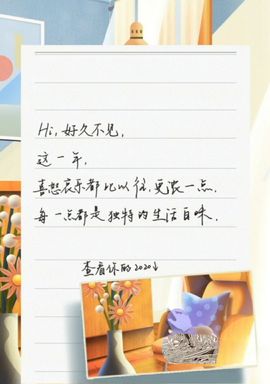 Hi,好久不见,
这一年,
喜怒哀乐都比以往,更浓一点.
每一点都是独特的生活百味.
查看你的2020↓